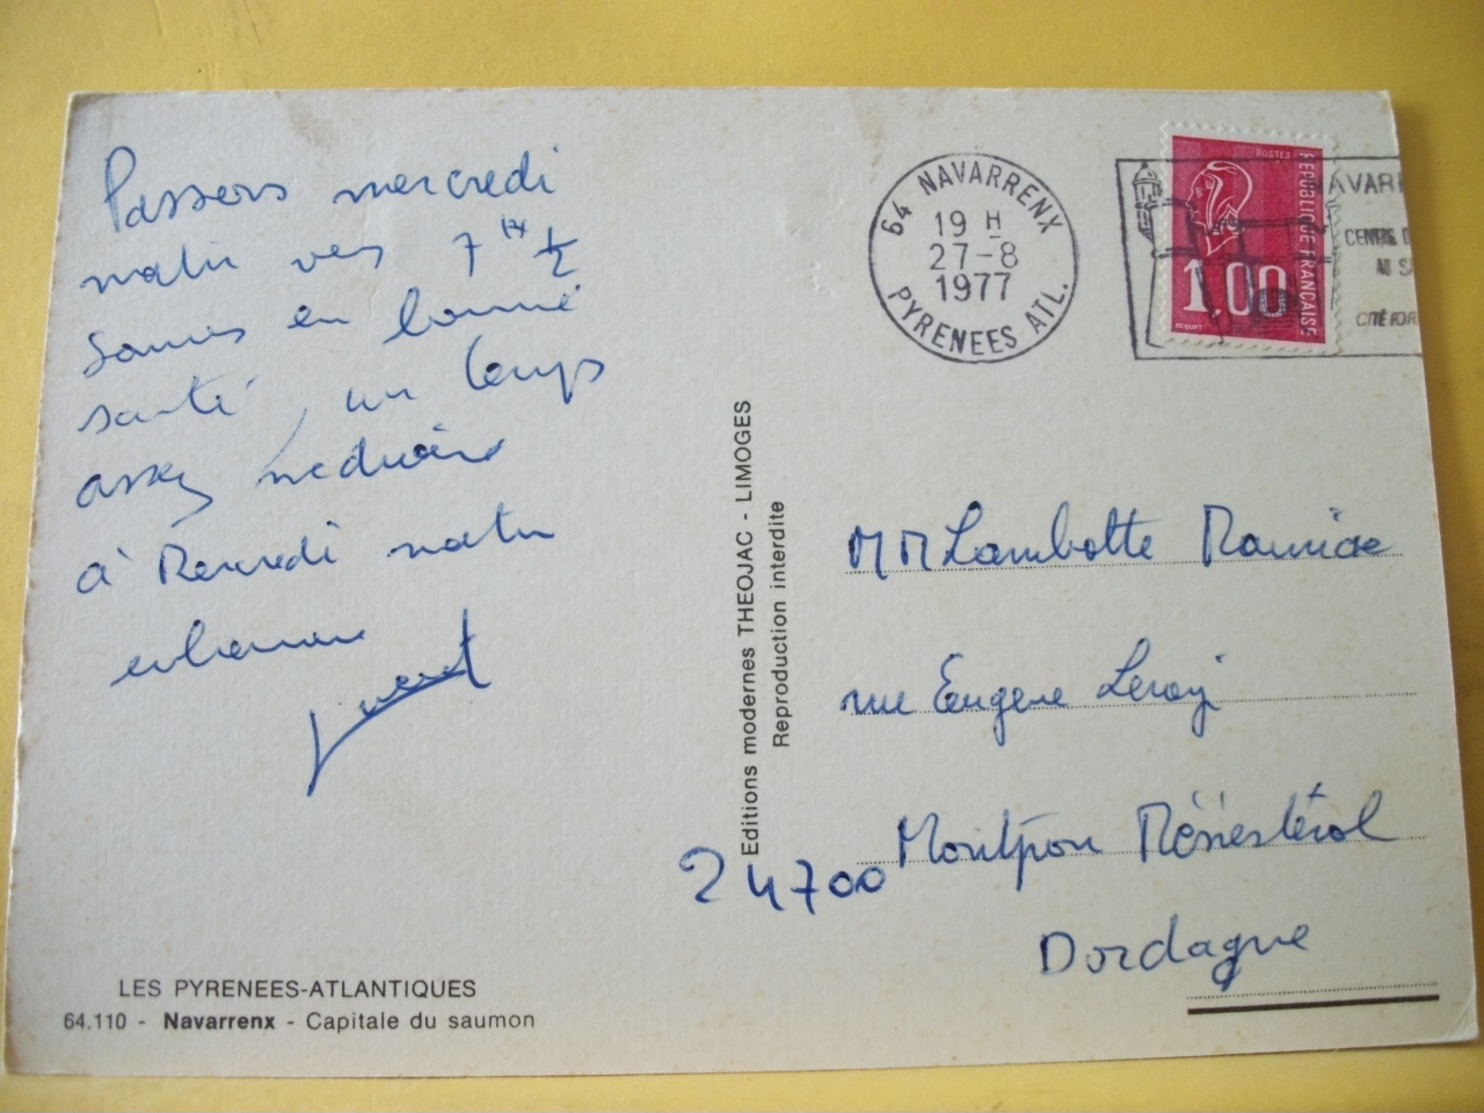 Passons mercredi
matin vers 7 H 1/2
Sommes en bonne
santé, un temps
assez médiocre
à Mercredi matin
64 NAVARRENX
19 H
27-8
1977
PYRENEES ATL.
POSTES
REPUBLIQUE FRANÇAISE
1,00
BEQUET
NAVARR
CENTRE D
CITÉ FOR
Editions modernes THEOJAC - LIMOGES
Reproduction interdite
MM Lambotte Maurice
rue Eugene Leroy
24700 Montpon Ménestérol
Dordogne
LES PYRENEES-ATLANTIQUES
64.110 - Navarrenx - Capitale du saumon